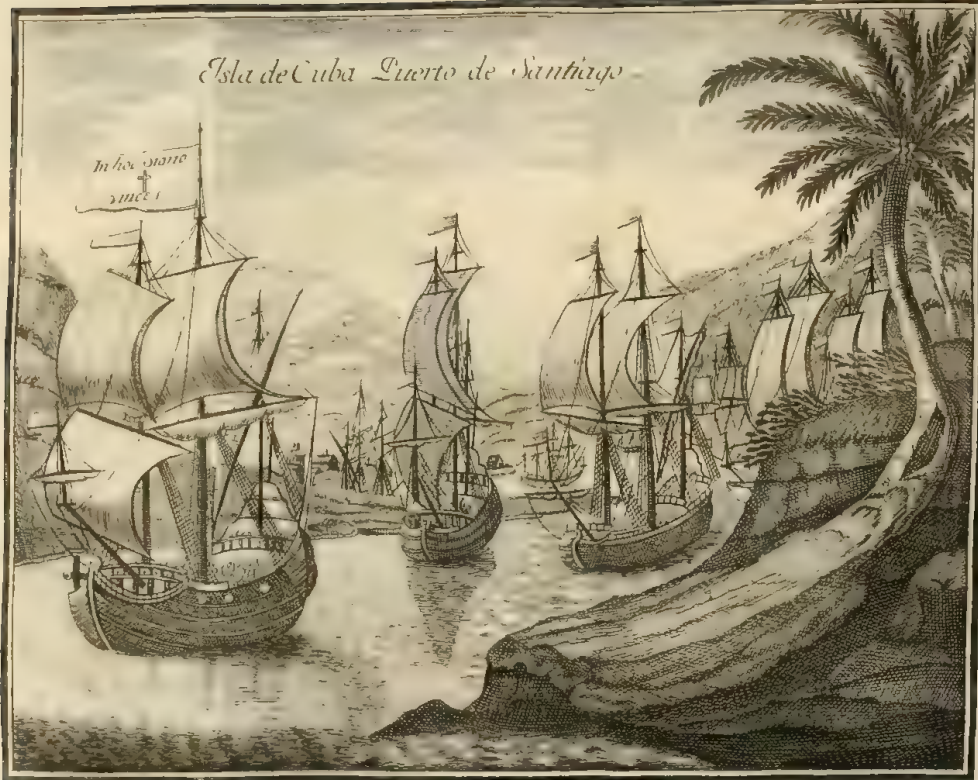 Isla de Cuba Puerto de Santiago
In hoc signo
vinces